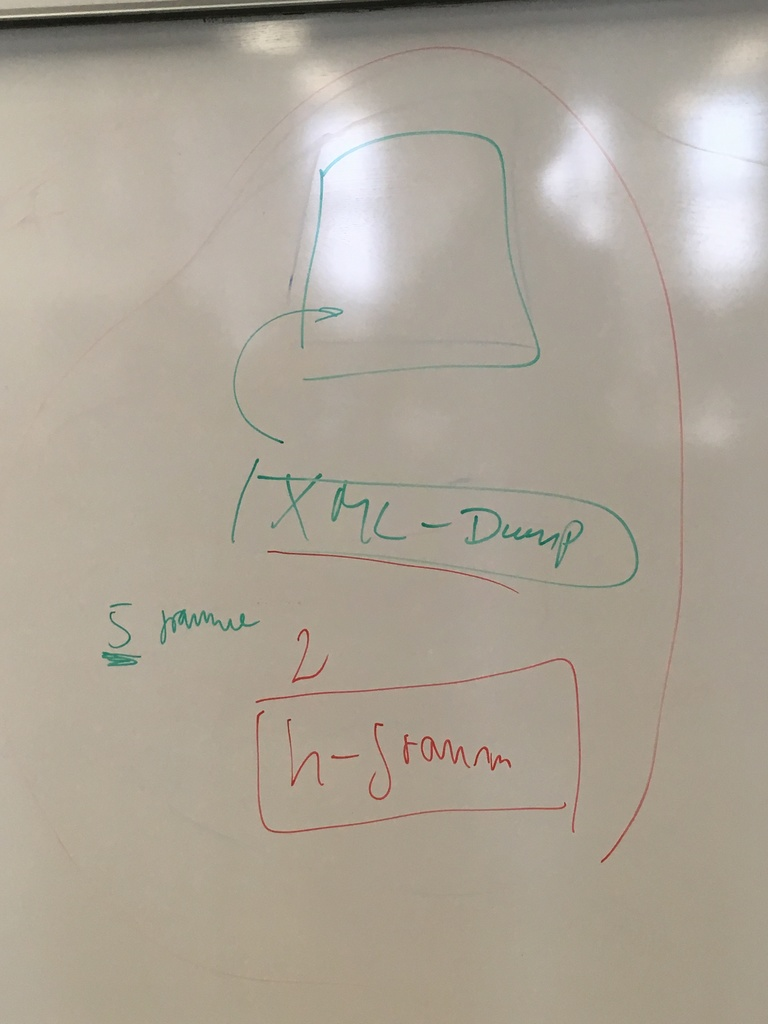 XML-Dump
5 gramme
2
n-gramm